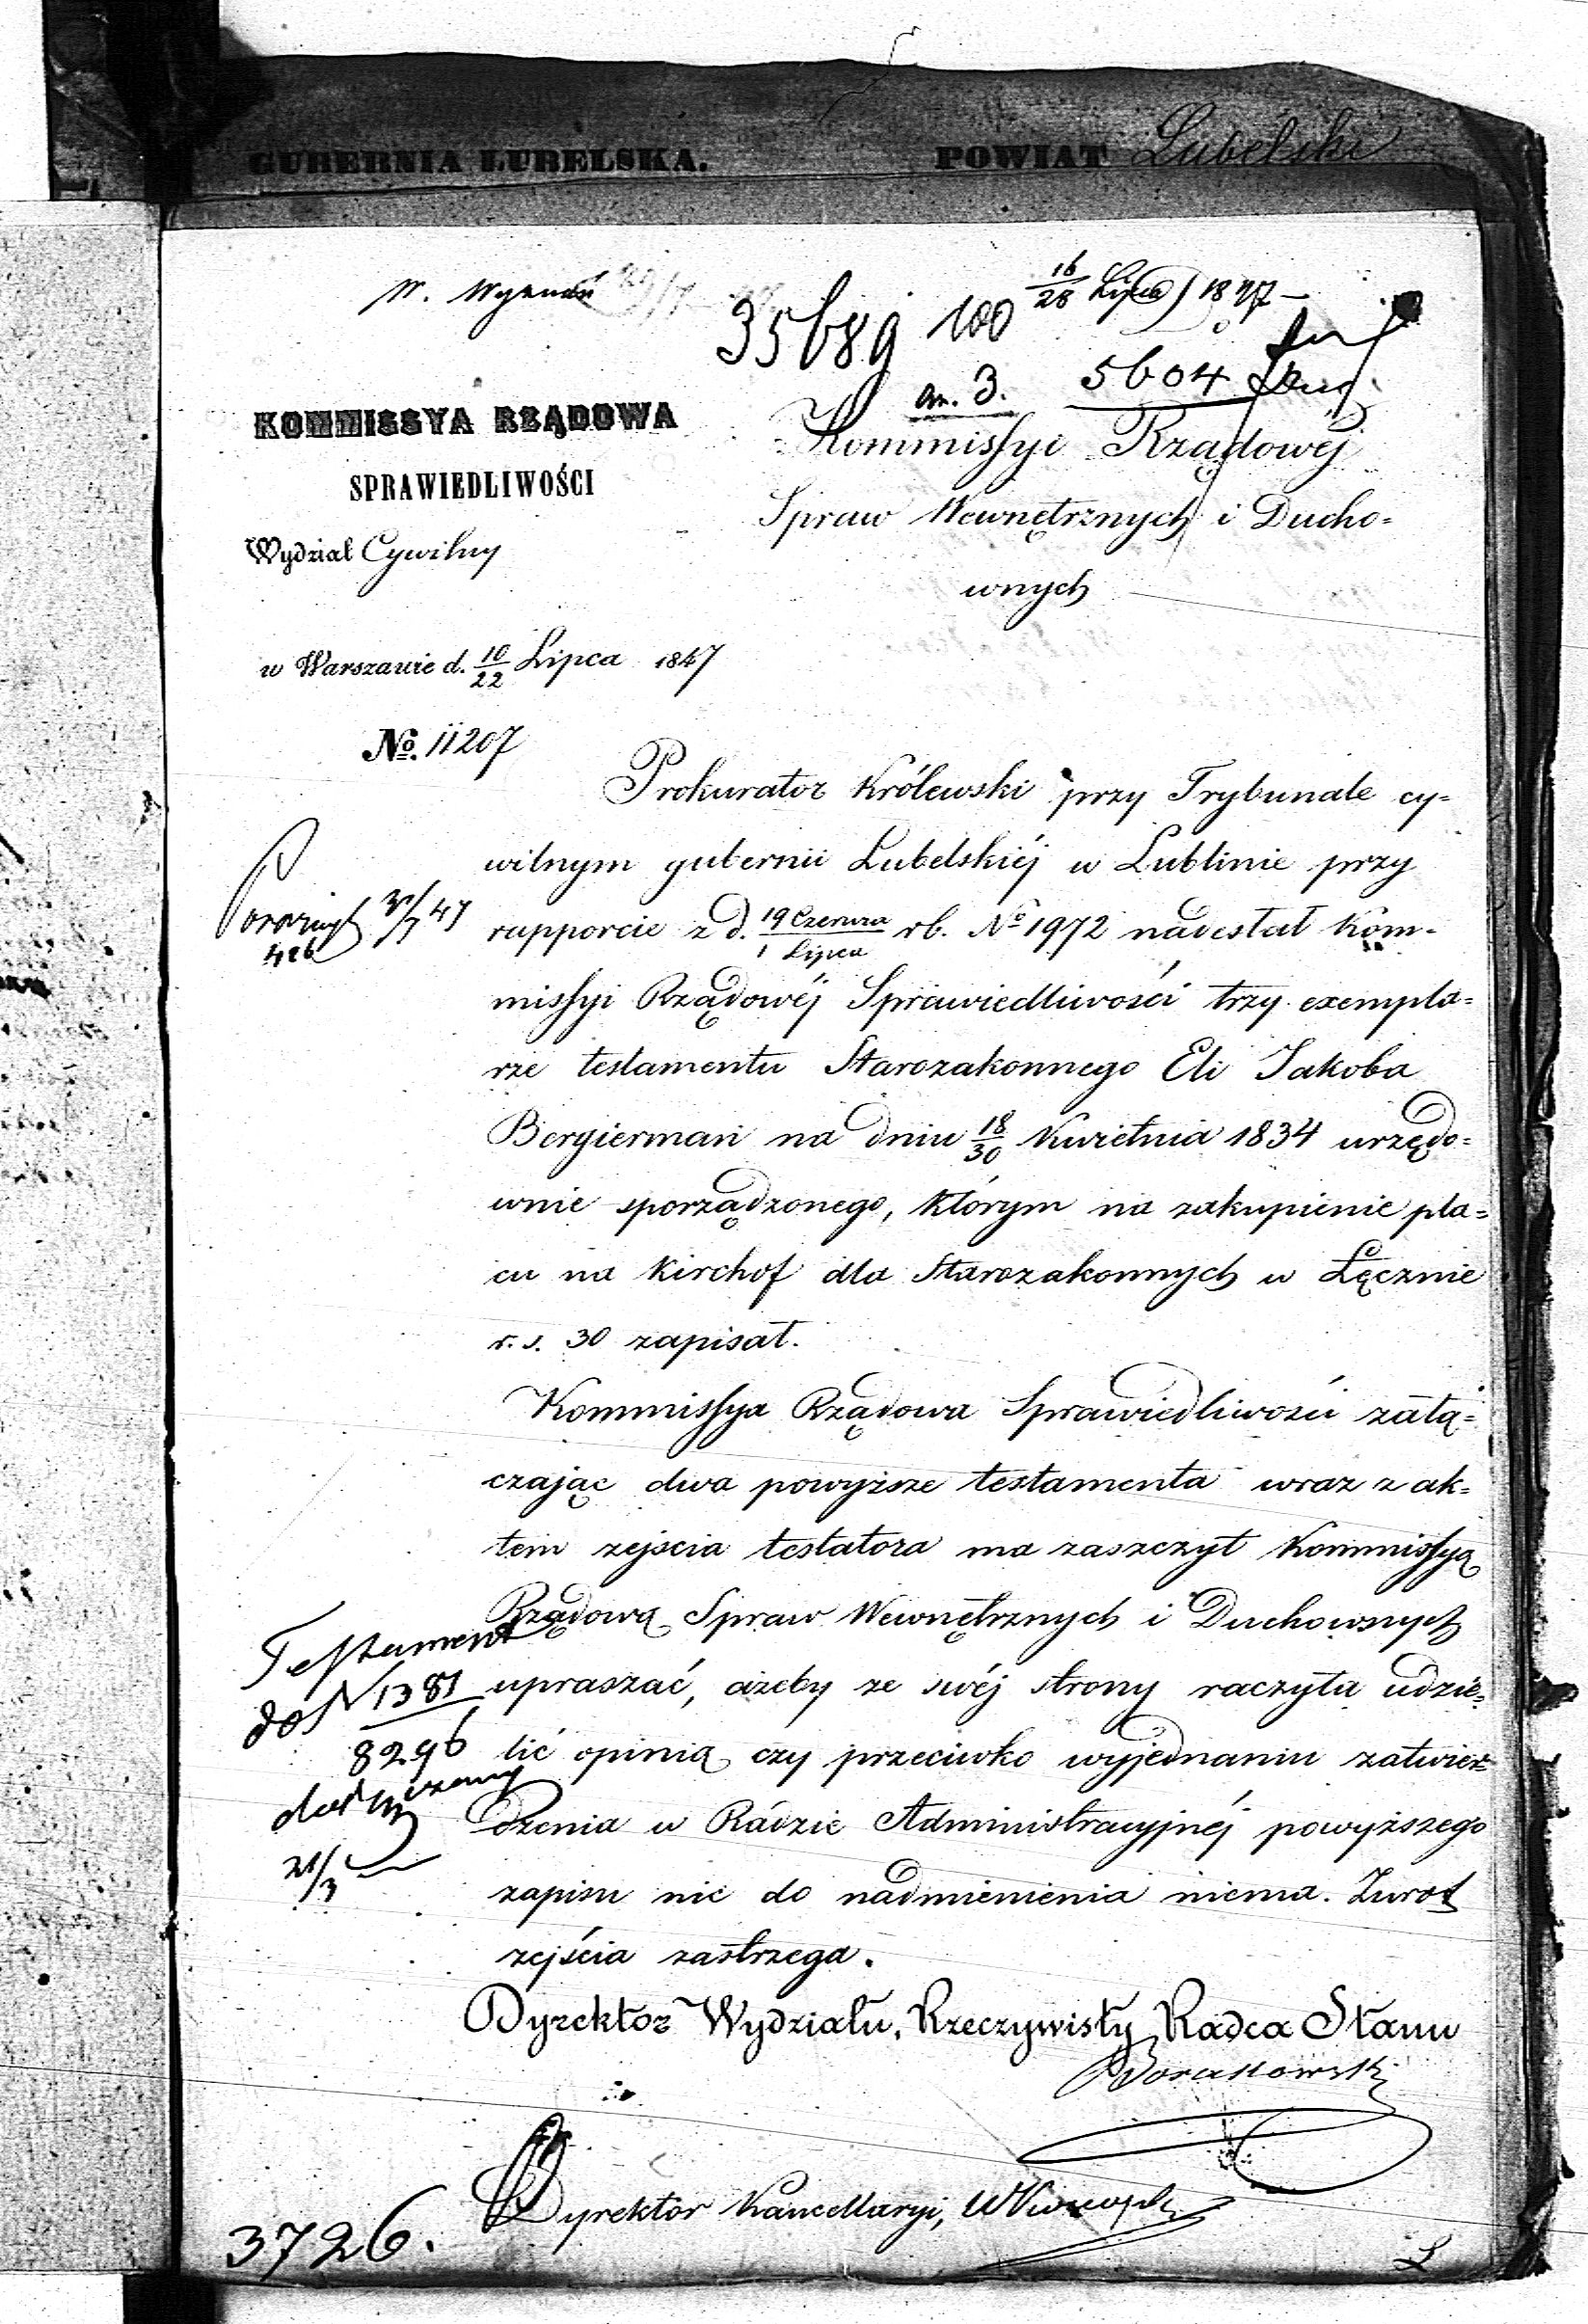 GUBERNIA LUBELSKA. POWIAT Lubelski
W. Wyznań
16/28 Lipca 1847
35689 100
an. 3. 5604
KOMMISSYA RZĄDOWA
SPRAWIEDLIWOŚCI
Wydział Cywilny
w Warszawie d. 10/22 Lipca 1847
No. 11207
Kommissyi Rządowéj
Spraw Wewnętrznych i Ducho=
wnych
Prokurator Królewski przy Trybunale cy=
wilnym gubernii Lubelskiéj w Lublinie przy
rapporcie z d. 19 Czerwca/1 Lipca rb. No 1972 nadesłał Kom=
missyi Rządowéj Sprawiedliwości trzy exempla=
rze testamentu Starozakonnego Eli Jakoba
Bergierman na dniu 18/30 Kwietnia 1834 urzędo=
wnie sporządzonego, którym na zakupienie pla=
cu na Kirchof dla Starozakonnych w Łęcznie
r. s. 30 zapisał.
Kommissya Rządowa Sprawiedliwości załą=
czając dwa powyższe testamenta wraz z ak=
tem zejścia testatora ma zaszczyt Kommissyą
Rządową Spraw Wewnętrznych i Duchownych
upraszać, ażeby ze swéj strony raczyła udzie=
lić opinią czy przeciwko wyjednaniu zatwier=
dzenia w Radzie Administracyjnéj powyższego
zapisu nic do nadmienienia niema. Zwrot
zejścia zastrzega.
Testament
do N 1381
8296
21/3
Dyrektor Wydziału, Rzeczywisty Radca Stanu
Dyrektor Kancellaryi,
3726.